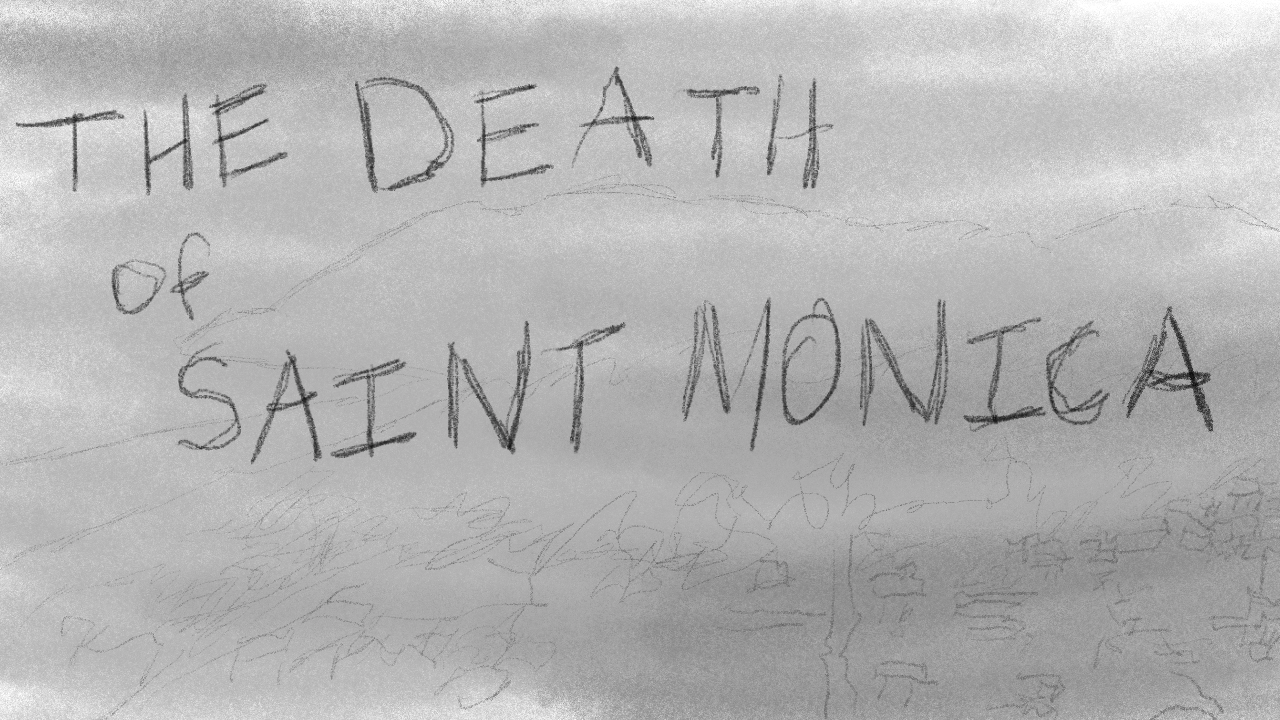 THE DEATH
of
SAINT MONICA